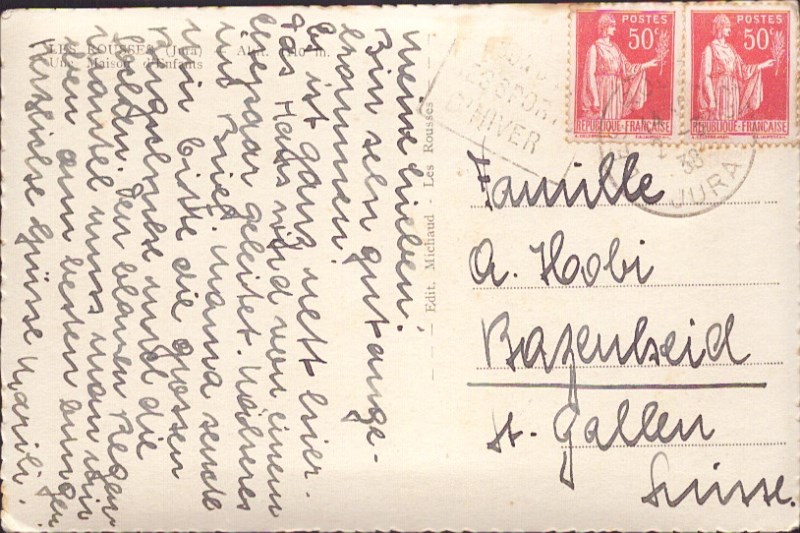 LES ROUSSES (Jura) - Alt. m.
Une Maison d'Enfants
Meine Lieben!
Bin sehr gut ange-
kommen!
Es ist ganz nett hier.
Das Haus wird von einem
Ehepaar geleitet. Näheres
im Brief. Mama sende
mir bitte die grossen
Bergschuhe und die
Den blauen Regen-
mantel muss man mir
am besten
Herzliche Grüsse Marili.
Edit. Michaud - Les Rousses
SPORTS
D'HIVER
POSTES
50c
REPUBLIQUE-FRANÇAISE
POSTES
50c
REPUBLIQUE-FRANÇAISE
38
JURA
Famille
A. Hobi
Bazenheid
St. Gallen
Suisse.